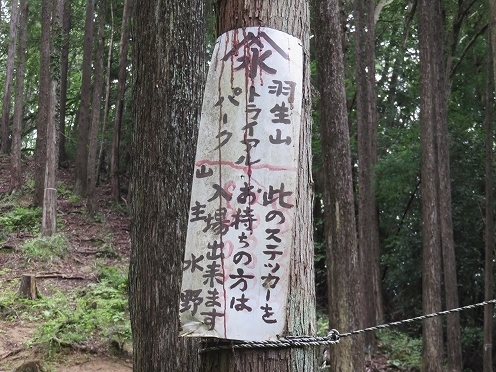 水
羽生山
トライアル
パーク
此のステッカーを
お持ちの方は
入場出来ます
山主水野